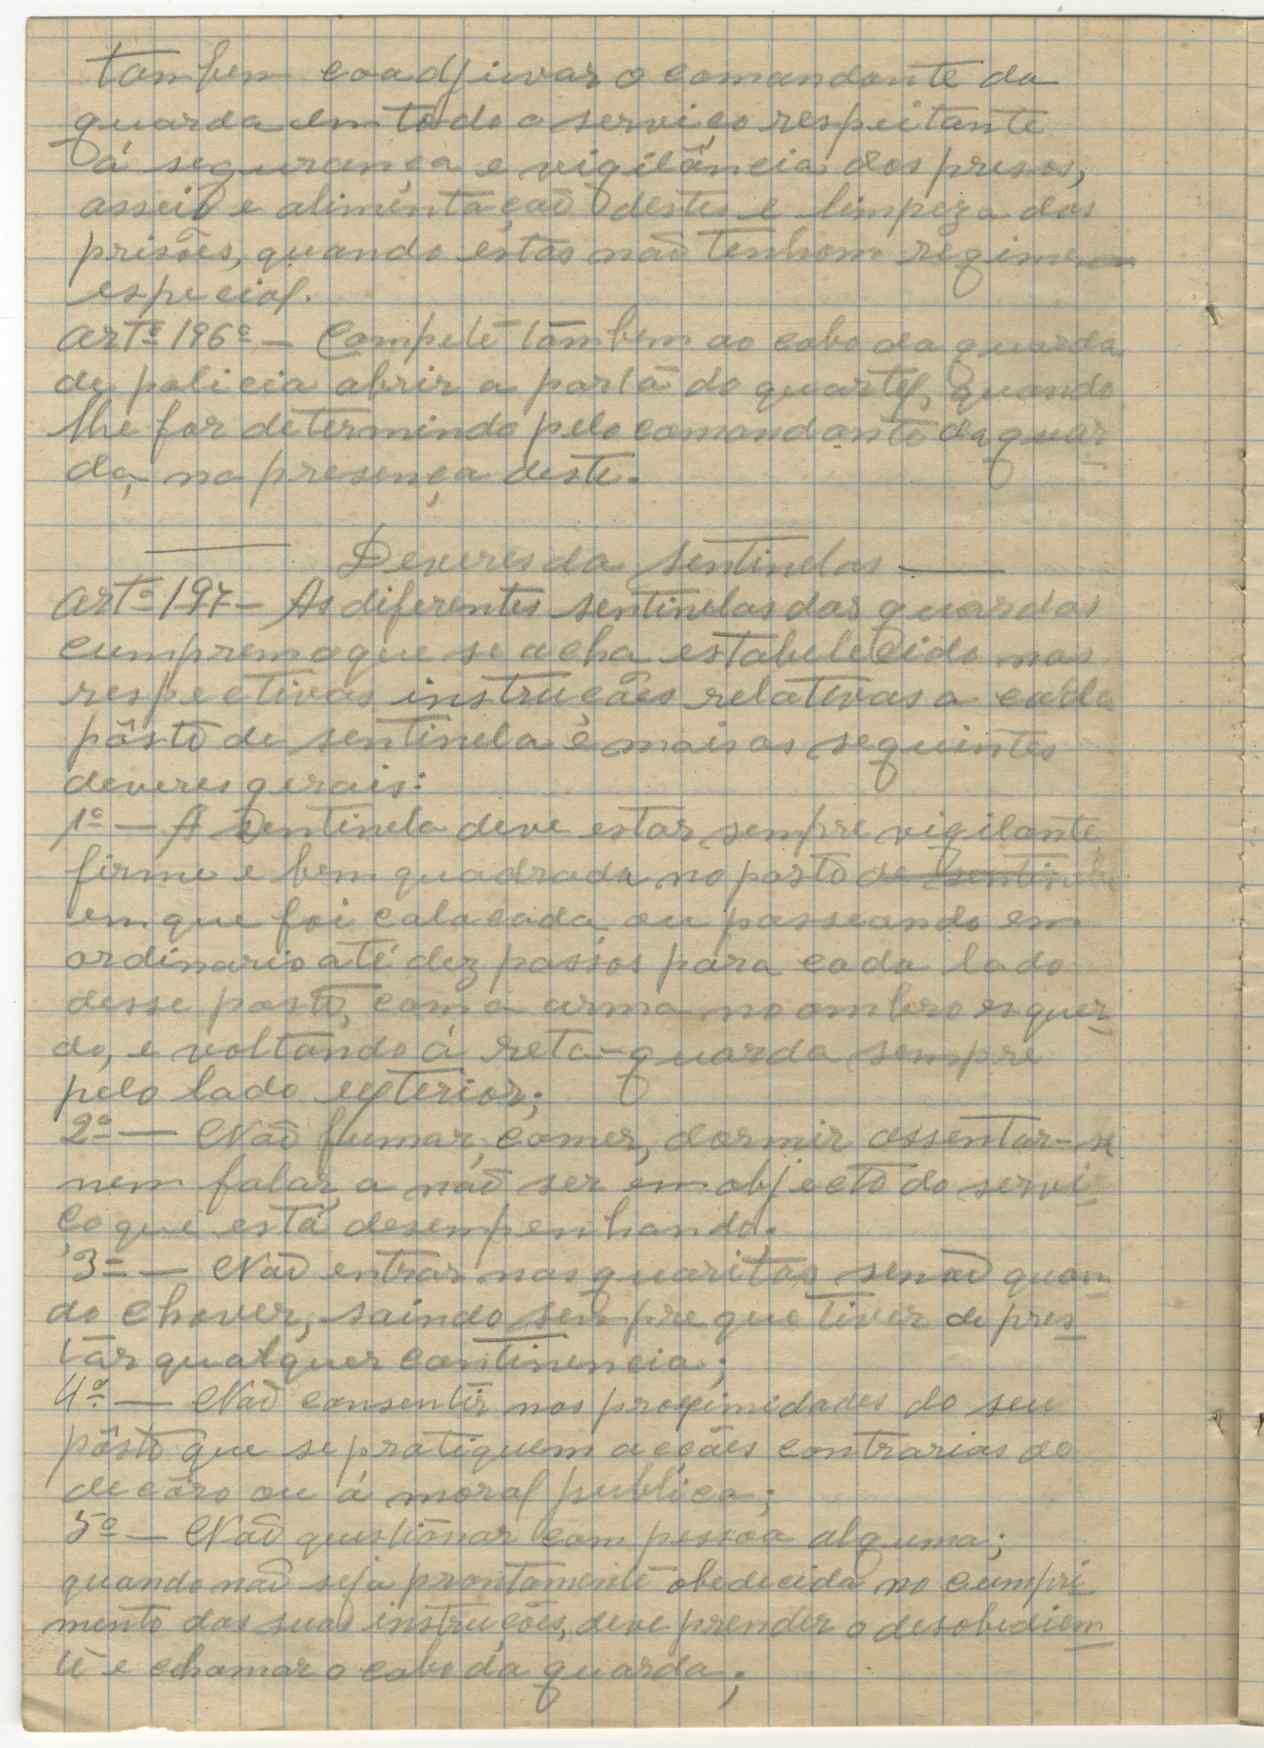 tambem coadjuvar o comandante da
guarda em todo o serviço respeitante
á segurança e vigilância dos presos,
asseio e alimentação destes e limpeza das
prisões, quando estas não tenham regimen
especial.
Artº 196º — Compete tambem ao cabo da guarda
de policia abrir a porta do quartel, quando
lhe for determindo pelo comandante da guar
da, na presença deste.
Deveres da sentinelas
Artº 197 — As diferentes sentinelas das guardas
cumprem o que se acha estabelecido nas
respectivas instruções relativas a cada
pôsto de sentinela e mais os seguintes
deveres gerais:
1º — A sentinela deve estar sempre vigilante
firme e bem quadrada no posto de sentinela
em que foi colocada ou passeando em
ordinario até dez passos para cada lado
desse posto, com a arma no ombro esquer
do, e voltando á reta-guarda sempre
pelo lado exterior;
2º — Não fumar, comer, dormir assentar-se
nem falar a não ser em objecto do servi
ço que está desempenhando.
3º — Não entrar nas guaritas senão quan
do chover, saindo sempre que tiver de pres
tar qualquer continencia;
4º — Não consentir nas proximidades do seu
pôsto que se pratiquem acções contrarias ao
decôro ou á moral publica;
5º — Não questionar com pessoa alguma;
quando não seja prontamente obedecida no cumpri
mento das suas instruções, deve prender o desobedien
te e chamar o cabo da guarda;